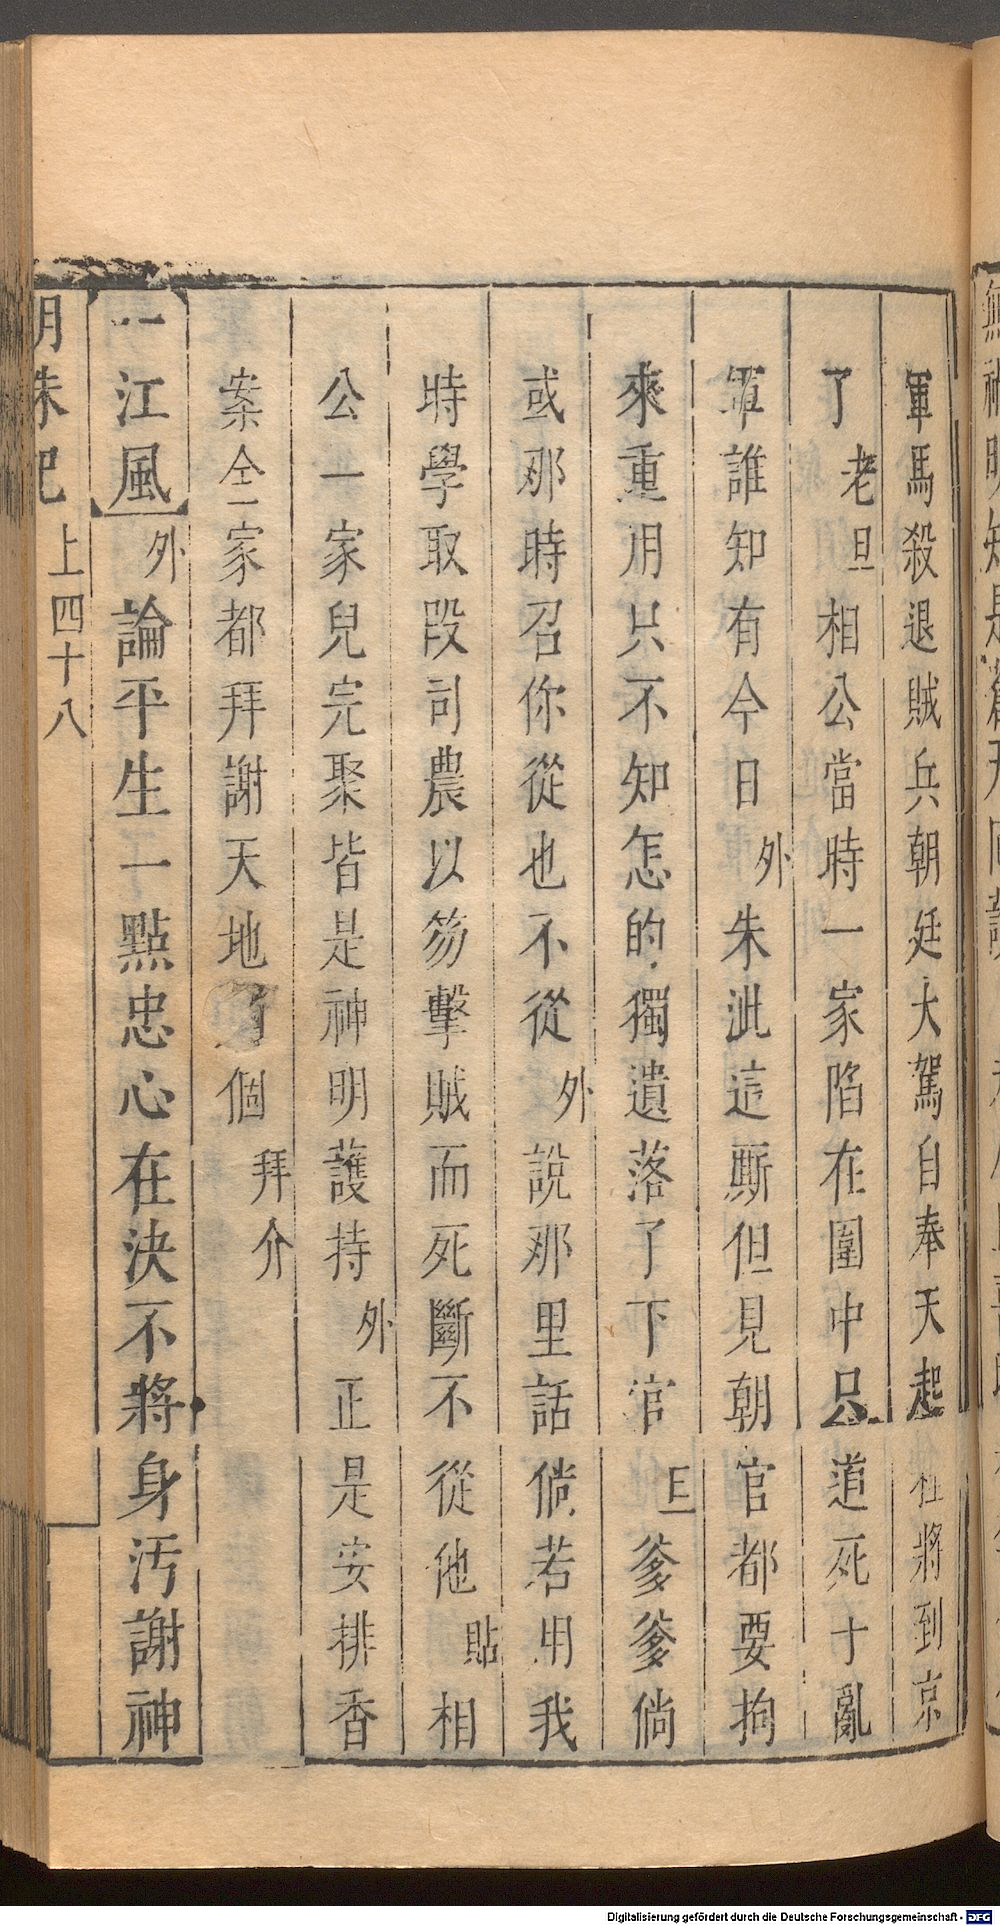 軍馬殺退賊兵朝廷大駕自奉天起在將到京
了老旦相公當時一家陷在圍中只道死于亂
軍誰知有今日外朱泚這厮但見朝官都要拘
來重用只不知怎的獨遺落了下官旦爹爹倘
或那時召你從也不從外說那里話倘若用我
時學取段司農以笏擊賊而死斷不從他貼相
公一家兒完聚皆是神明護持外正是安排香
案仝家都拜謝天地個拜介
一江風外論平生一點忠心在決不將身汚謝神
明珠記
上四十八
Digitalisierung gefördert durch die Deutsche Forschungsgemeinschaft - DFG